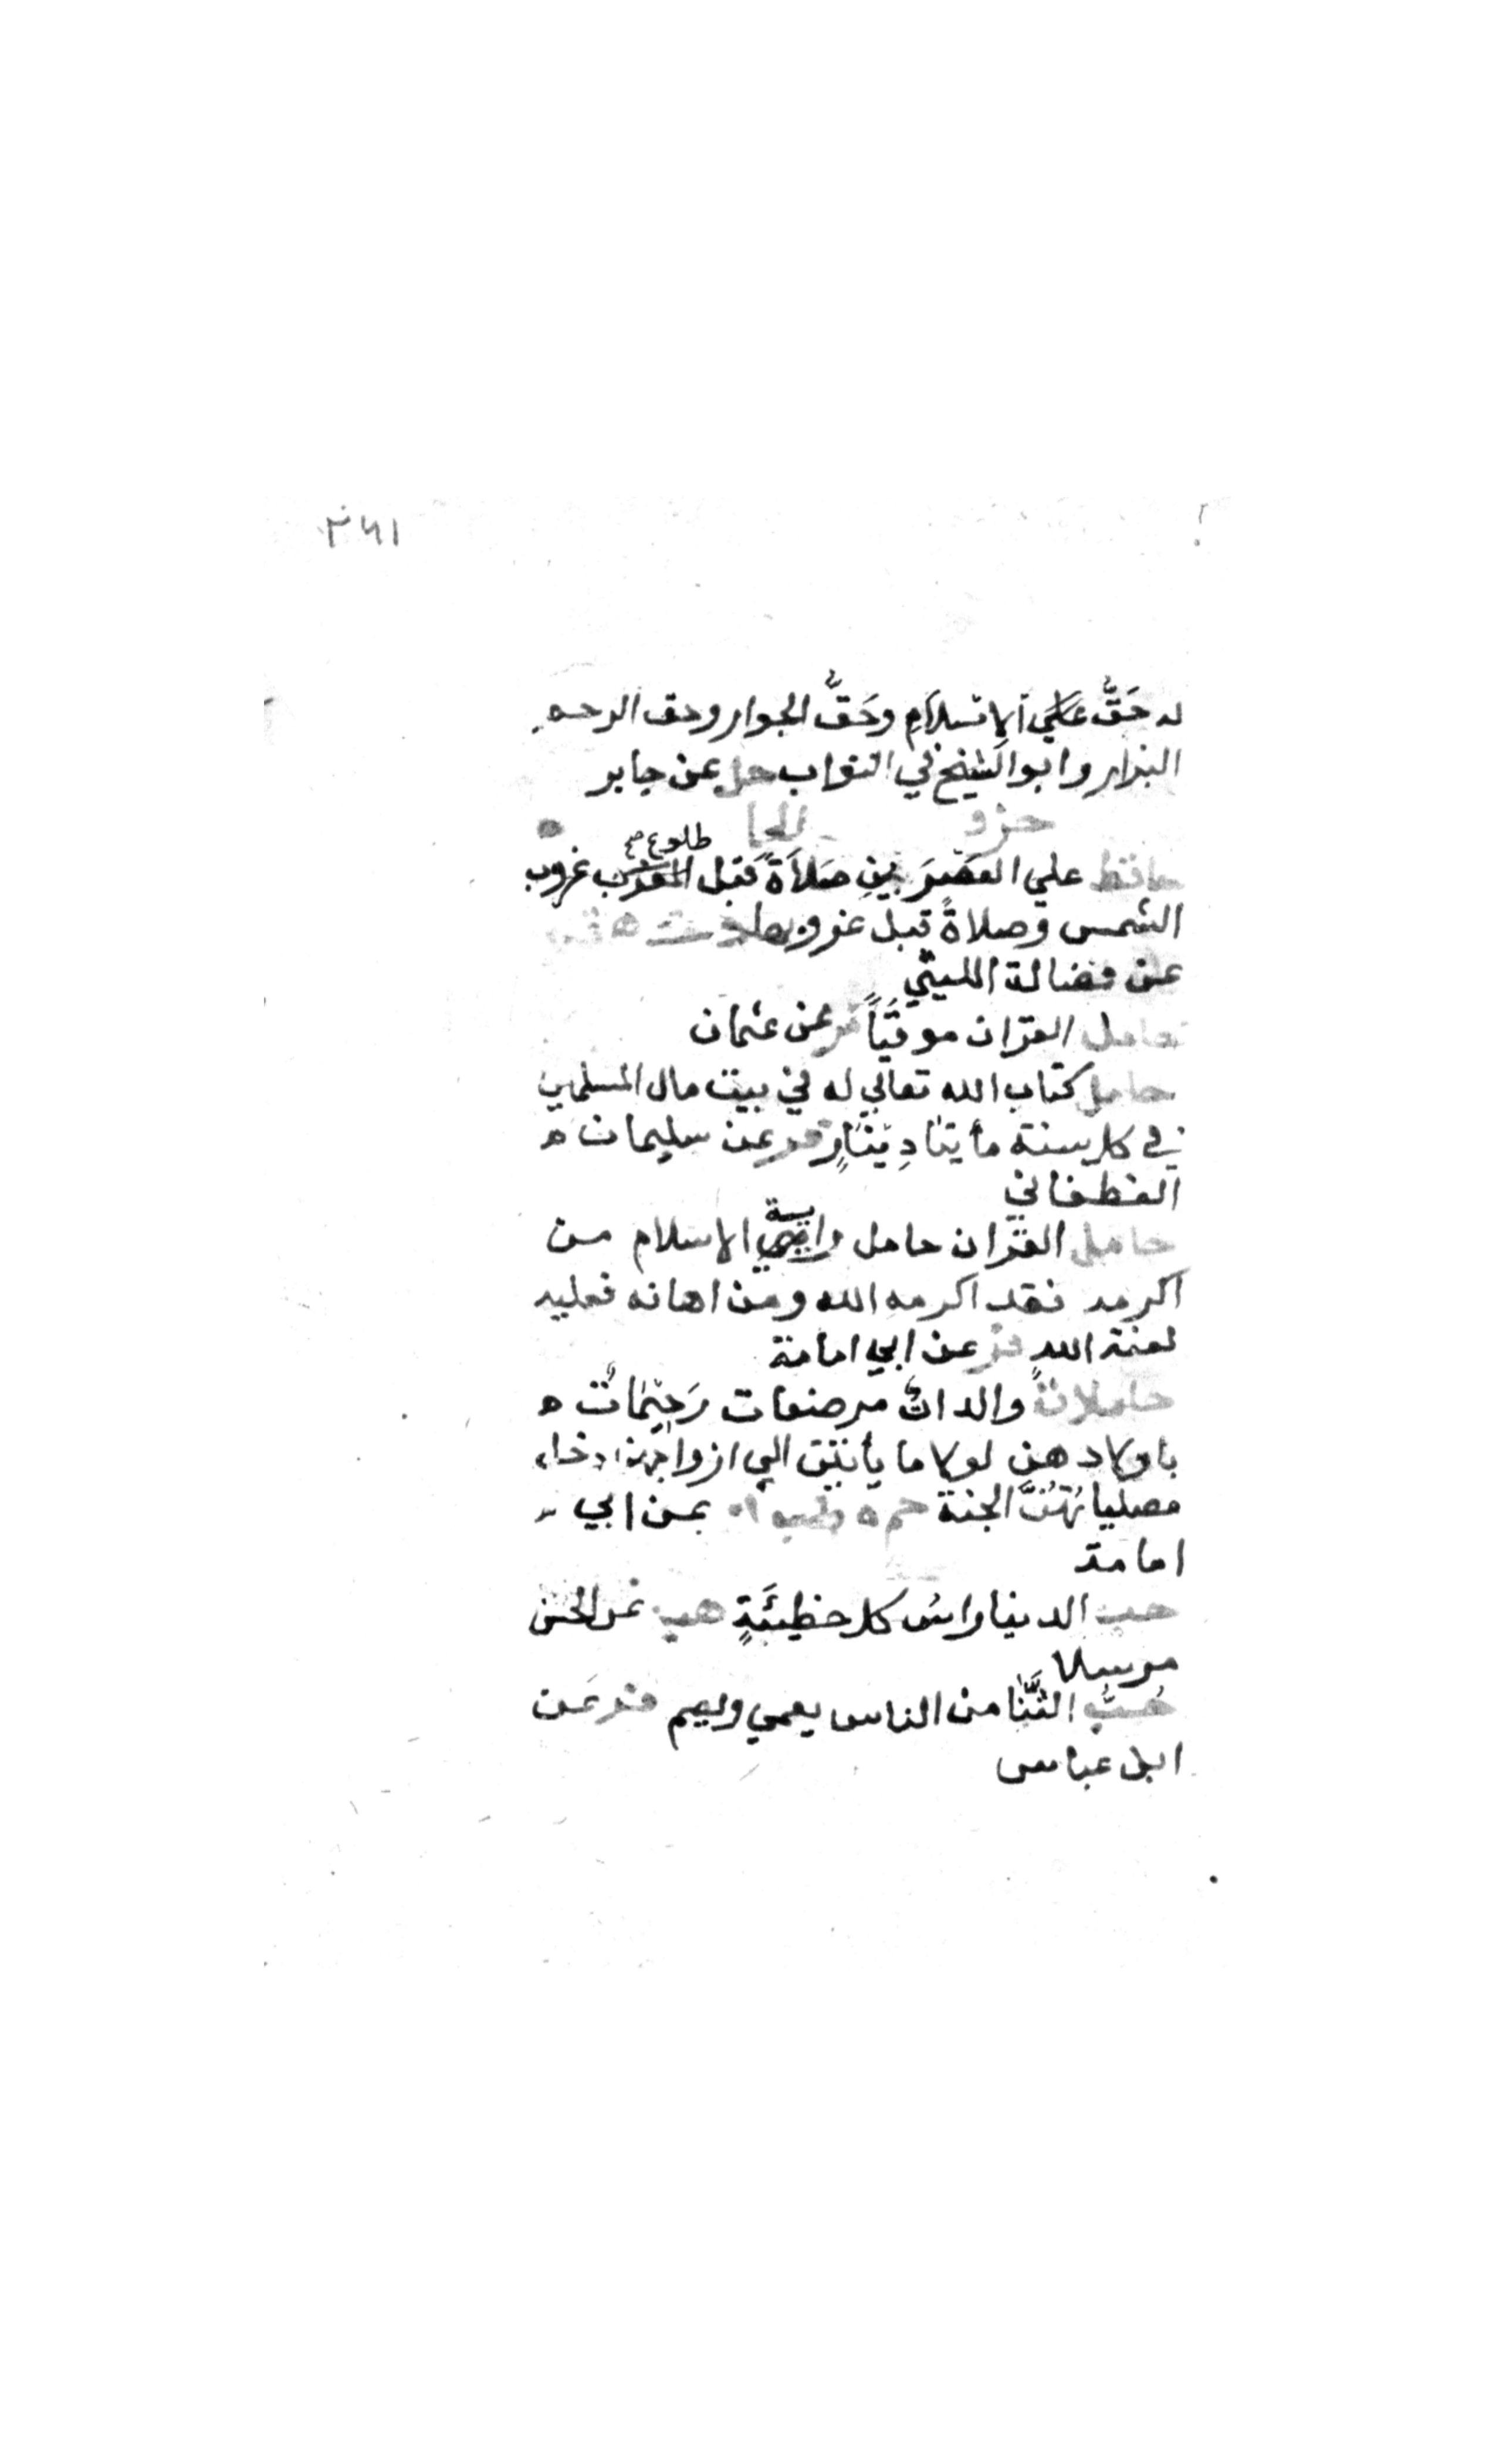 له حَقُّ عَلَيَ الاِسْلاَمِ وحَقُّ الجوار وحق الرحم
البزار وابوالشيخ في الثواب حل عن جابر
حرف الحا
حافظ علي العَصْرَينِ صَلاَةً قَبل طلوع صح غروب
الشمس وصلاةً قبل غروبها د ك هق
عن فضالة الليثي
حامل القران موقىاً فر عن عثمان
حامل كتاب الله تعالي له في بيت مال المسلمين
في كل سنة مأيتا دِينَارٍ فر عن سليمان ه
الغطفاني
حامل القران حامل راية الاسلام من
اكرمه فقد اكرمه الله ومن اهانه فعليه
لعنة اللهِ فر عن ابي امامة
حاملات والداتُ مرضعات رَحِيْمَاتُ ه
باولادهن لولا ما يأتين الي ازواجهن دخل
مصلياتهُنَّ الجنة حم ه طب ك عن ابي
امامة
حب الدنيا راسُ كل خطيئَةٍ هب عن الحسن
مرسلا
حُبُّ الثَّنَا من الناس يعمي ويصم فر عَن
ابن عباس